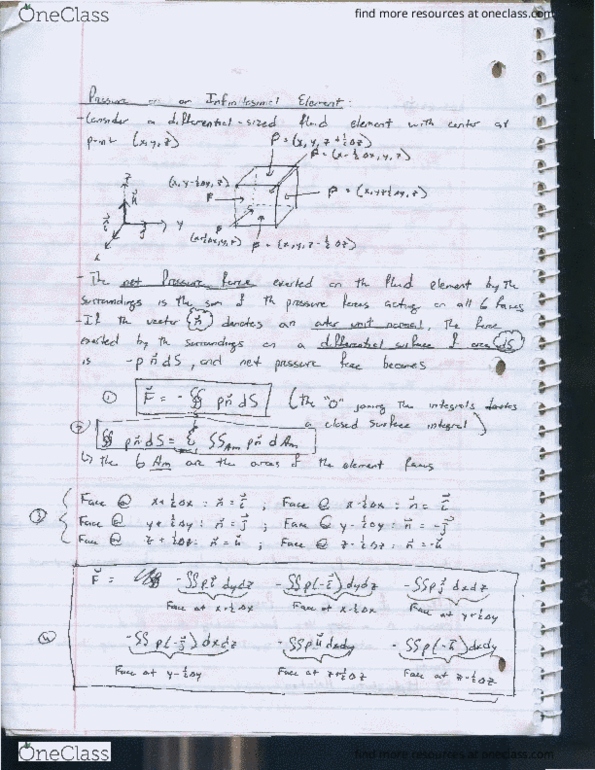 OneClass
find more resources at oneclass.com
Pressure on or Infinitesimal Element:
- Consider a differential-sized fluid element with center at
point (x, y, z)
P = (x, y, z + ½Δz)
P = (x - ½Δx, y, z)
(x, y - ½Δy, z)
P
P = (x, y + ½Δy, z)
z
k
i
j
y
x
P
(x + ½Δx, y, z)
P = (x, y, z - ½Δz)
- The net Pressure Force exerted on the fluid element by the
surroundings is the sum of th pressure forces acting on all 6 faces
- If the vector {n⃗} denotes an outer unit normal, the force
exerted by the surroundings on a differential surface of area dS
is -p n⃗ dS, and net pressure force becomes
① F⃗ = - ∯ p n⃗ dS (the "O" joining the integrals denotes
a closed surface integral)
② ∯ p n⃗ dS = Σ ∫∫Am p n⃗ dAm
↳ the 6 Am are the areas of the element faces
③
Face @ x + ½Δx : n⃗ = i⃗ ; Face @ x - ½Δx : n⃗ = i⃗
Face @ y + ½Δy : n⃗ = j⃗ ; Face @ y - ½Δy : n⃗ = -j⃗
Face @ z + ½Δz : n⃗ = k⃗ ; Face @ z - ½Δz : n⃗ = -k⃗
④
F⃗ = -∫∫ p i⃗ dydz -∫∫ p(-i⃗) dydz -∫∫ p j⃗ dxdz
Face at x + ½Δx Face at x - ½Δx Face at y + ½Δy
-∫∫ p(-j⃗) dxdz -∫∫ p k⃗ dxdy -∫∫ p(-k⃗) dxdy
Face at y - ½Δy Face at z + ½Δz Face at z - ½Δz
OneClass
find more resources at oneclass.com